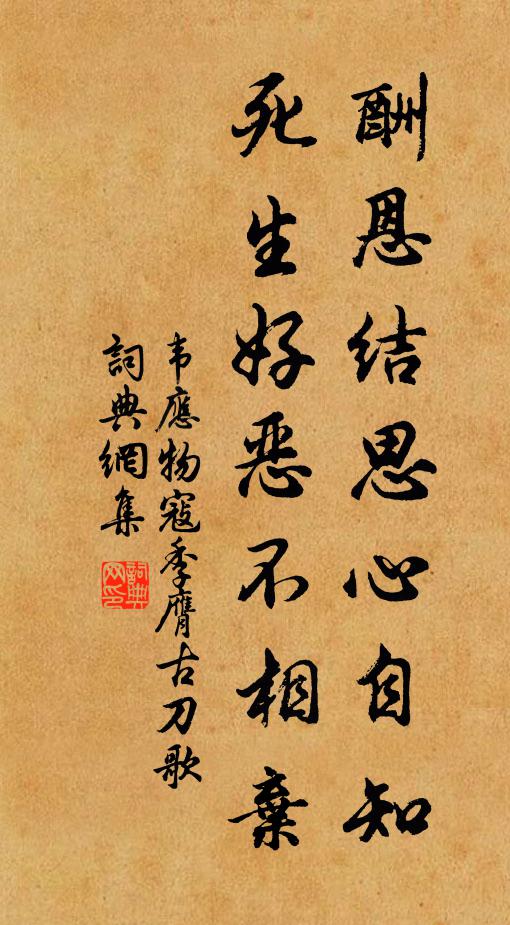 酬恩结思心自知
死生好恶不相棄
韦應物寇季膺古刀歌
詞典網集
詞典网印